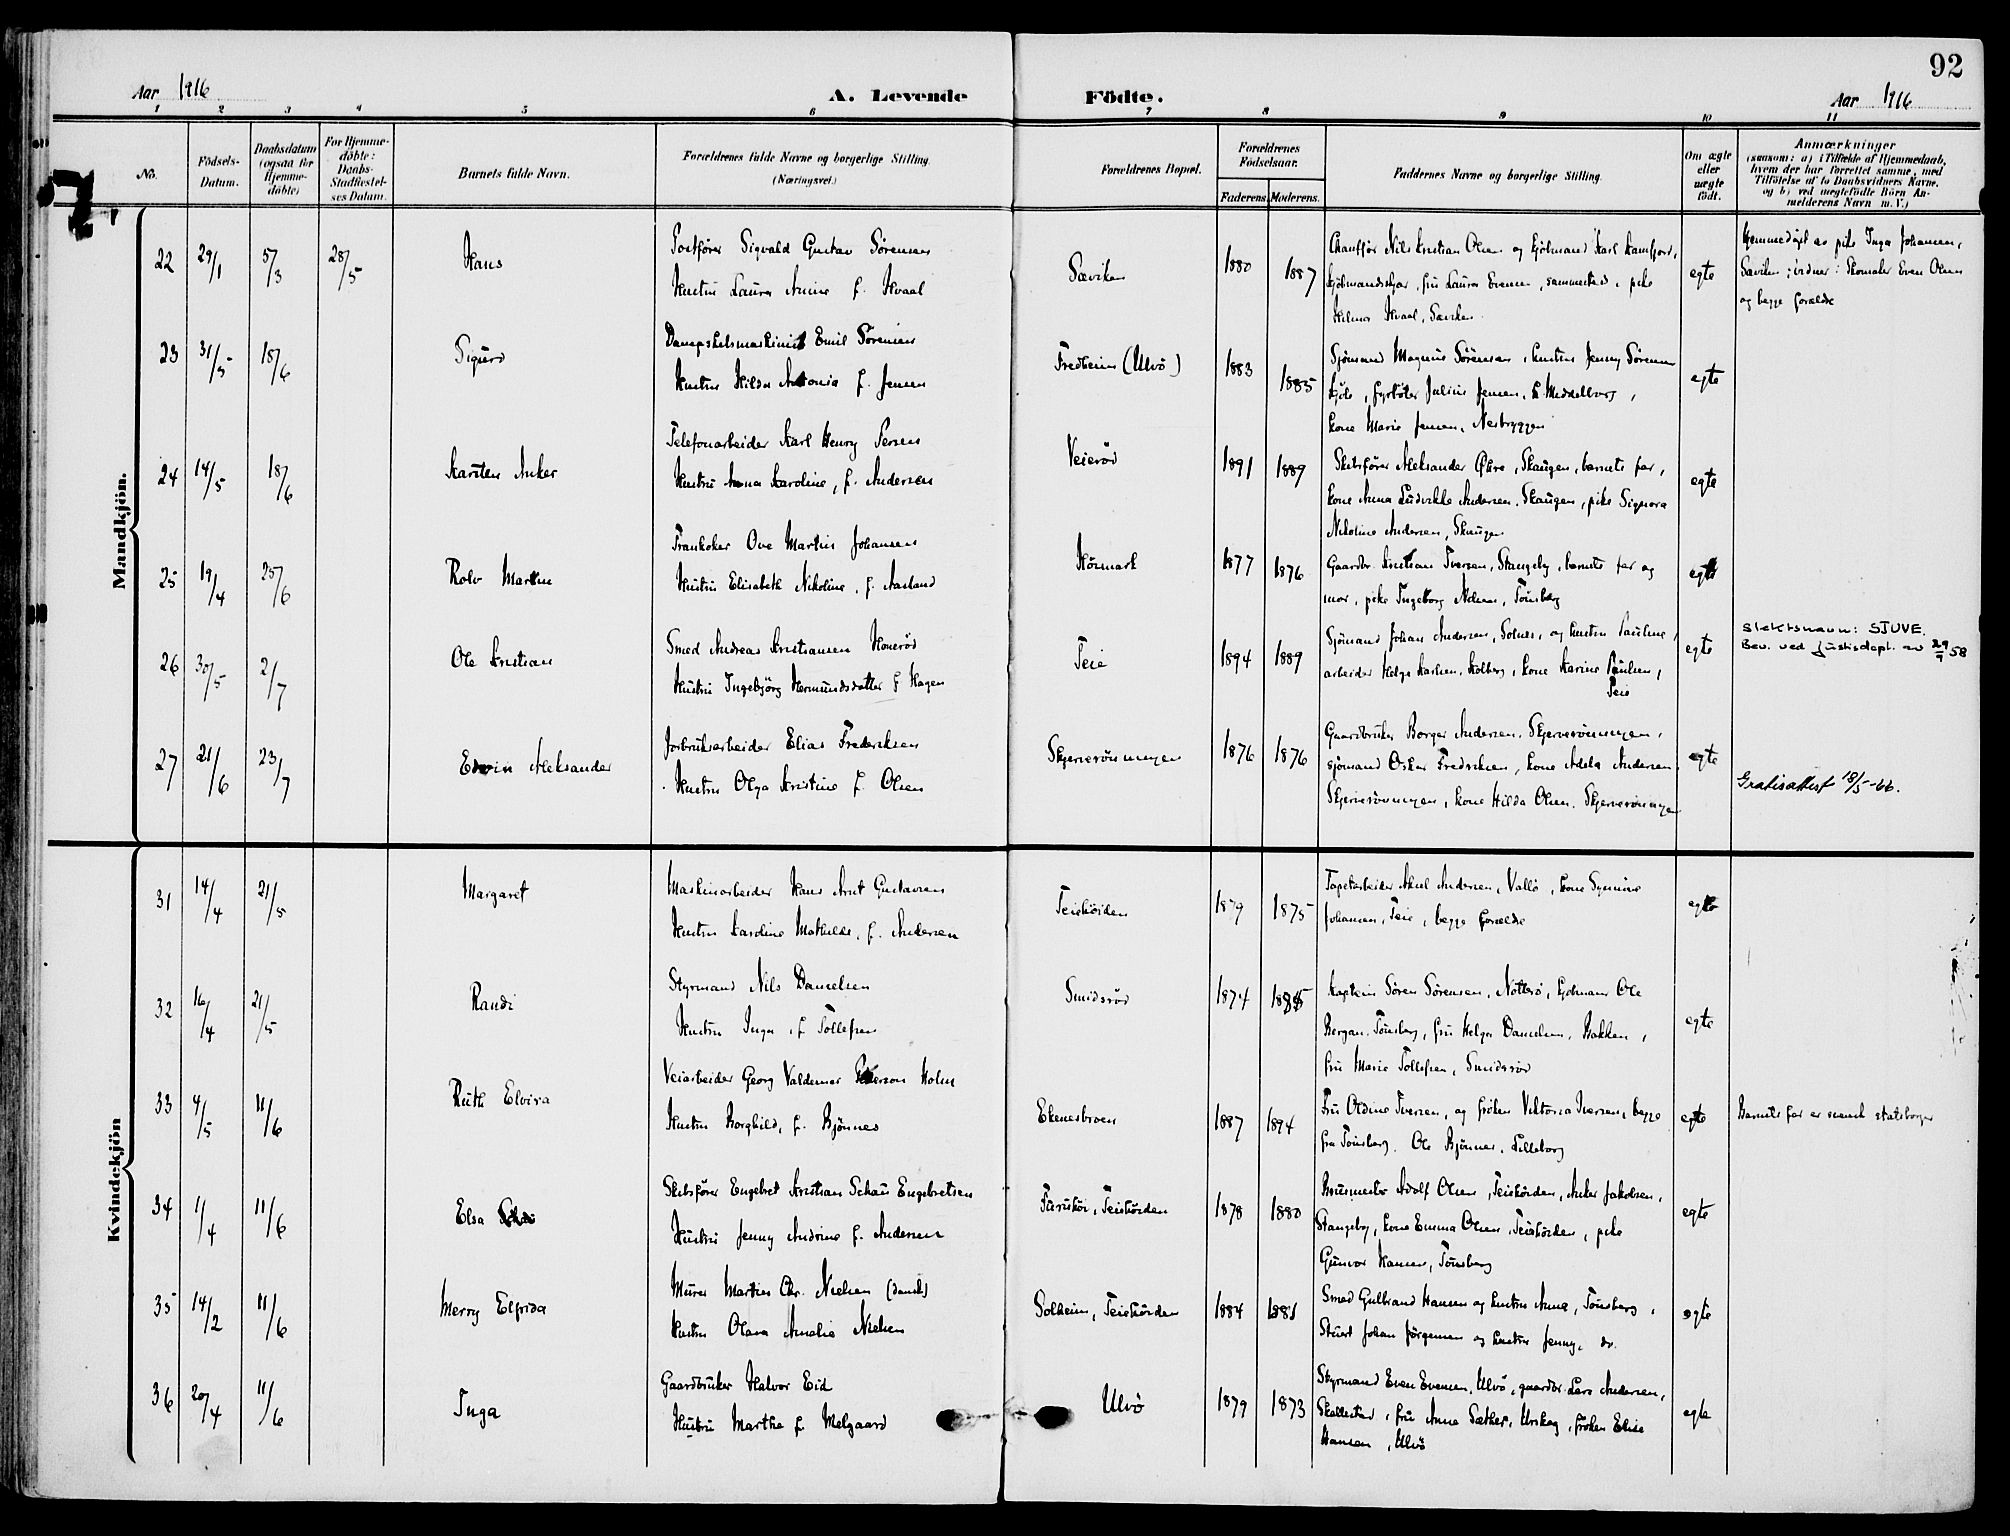 92
Aar 1916
A. Levende Födte.
Aar 1916
1 2 3 4 5 6 7 8 9 10 11
No.
Födsels-
Datum.
Daabsdatum
(ogsaa for
Hjemme-
döbte)
For Hjemme-
döbte:
Daabs-
Stadfæstel-
ses Datum.
Barnets fulde Navn.
Forældrenes fulde Navne og borgerlige Stilling.
(Næringsvei.)
Forældrenes Bopæl.
Forældrenes
Födselsaar.
Faderens. Moderens.
Faddernes Navne og borgerlige Stilling.
Om ægte
eller
uægte
födt.
Anmærkninger
(saasom: a) i Tilfælde af Hjemmedaab,
hvem der har forrettet samme, med
Tilföielse af to Daabsvidners Navne.
og b) ved uægtefödte Börn An-
melderens Navn m. V.)
Mandkjön.
22 29/1 5/3 28/5 Hans
Sigvald Gustav Sörensen
Hustru Laura Amine f. Hvaal
Sæviken 1880 1887
Chauffør Nils Kristian Olsen og
fru Laura Evensen, sammesteds, pike
Hilma Hvaal, Sæviken
egte
Hjemmedøpt av pike Inga Johansen,
Sæviken; vidner: Skomaker Even Olsen
og begge forældre
23 31/5 18/6 Sigurd
Dampskibsmaskinist Emil Sörensen
Hustru Hilda Antonia f. Jensen
Fredheim (Ulvö) 1883 1885
Sjömand Magnus Sörensen, hustru Jenny Sörensen
fyrböter Julius Jensen,
kone Marie Jensen, Nesbryggen
egte
24 14/5 18/6 Karsten Anker
Telefonarbeider Karl Henry
Hustru Anna Karoline, f. Andersen
Veierød 1891 1889
Skibsfører Aleksander Øhre, Skaugen, barnets far,
kone Anna Ludvikke Andersen, Skaugen, pike Signora
Nikoline Andersen, Skaugen
egte
25 19/4 25/6 Rolv Martin
Trankoker Ove Martin Johansen
Hustru Elisabeth Nikoline, f. Aasland
1877 1876
Gaardbr. Kristian Iversen, Stangeby, barnets far og
mor, pike Ingeborg Nilsen, Tönsberg
egte
26 30/5 2/7 Ole Kristian
Smed Andreas Kristiansen
Hustru Ingebjörg Hermundsdatter f Hagen
Teie 1894 1889
Sjömand Johan Andersen, Solnes, og hustru Pauline,
arbeider Helge Karlsen, Kolberg, kone Karine Paulsen,
Teie
egte
slektsnavn: SJUVE.
Bev. ved Justisdept. av 29/9 58
27 21/6 23/7 Edwin Aleksander
Jordbruksarbeider Elias Fredriksen
Hustru Olga Kristine f. Olsen
Skjerverönningen 1876 1876
Gaardbruker Borger Andersen, Skjerverönningen,
sjömand Oskar Fredriksen, kone Adela Andersen
Skjerverönningen, kone Hilda Olsen, Skjerverönningen
egte
Gratisattest 18/5-66.
Kvindekjön
31 14/4 21/5 Margaret
Maskinarbeider Hans Arnt Gustavsen
Hustru Karoline Mathilde, f. Andersen
Teieskörden 1879 1875
Tapetarbeider Aksel Andersen, Vallö, kone
Johansen, Teie, begge forældre
egte
32 16/4 21/5 Randi
Styrmand Nils Danielsen
Hustru Inga, f Tollefsen
Smidsröd 1874
Kaptein Sören Sörensen, Nötterö, Ole
Bergan, Tönsberg, fru Helga Danielsen, Bakken,
fru Marie Tollefsen, Smidsröd
egte
33 4/5 11/6 Ruth Elvira
Veiarbeider Georg Valdemar Peterson Holm
Hustru Borghild, f. Bjönnes
Ekenesbroen 1887 1894
Fru Oldine Iversen, og fröken Viktoria Iversen, begge
fra Tönsberg. Ole Bjönnes, Lilleborg
egte
Barnets far er svensk statsborger
34 1/4 11/6 Elsa
Skibsfører Engebret Kristian Schau Engebretsen
Hustru Jenny Andrine f. Andersen
Teieskörden 1878 1880
Adolf Olsen, Teieskörden, Anker Jakobsen,
Stangeby, kone Emma Olsen, Teieskörden, pike
Gunvor Hansen, Tönsberg
egte
35 14/2 11/6 Merry Elfrida
Murer Martin Chr. Nielsen (dansk)
Hustru Olava Amalie Nielsen
Solheim, Teieskörden 1884 1881
Smed Gulbrand Hansen og hustru Anna, Tönsberg,
Stuert Johan Jörgensen og hustru Jenny, do.
egte
36 20/4 11/6 Inga
Gaardbruker Halvor Eid
Hustru Marthe f. Melgaard
Ulvö 1879 1873
Styrmand Even Evensen, Ulvö, gaardbr. Lars Andersen,
Skallestad, fru Anna Sæther, Urskog, fröken Elise
Hansen, Ulvö
egte